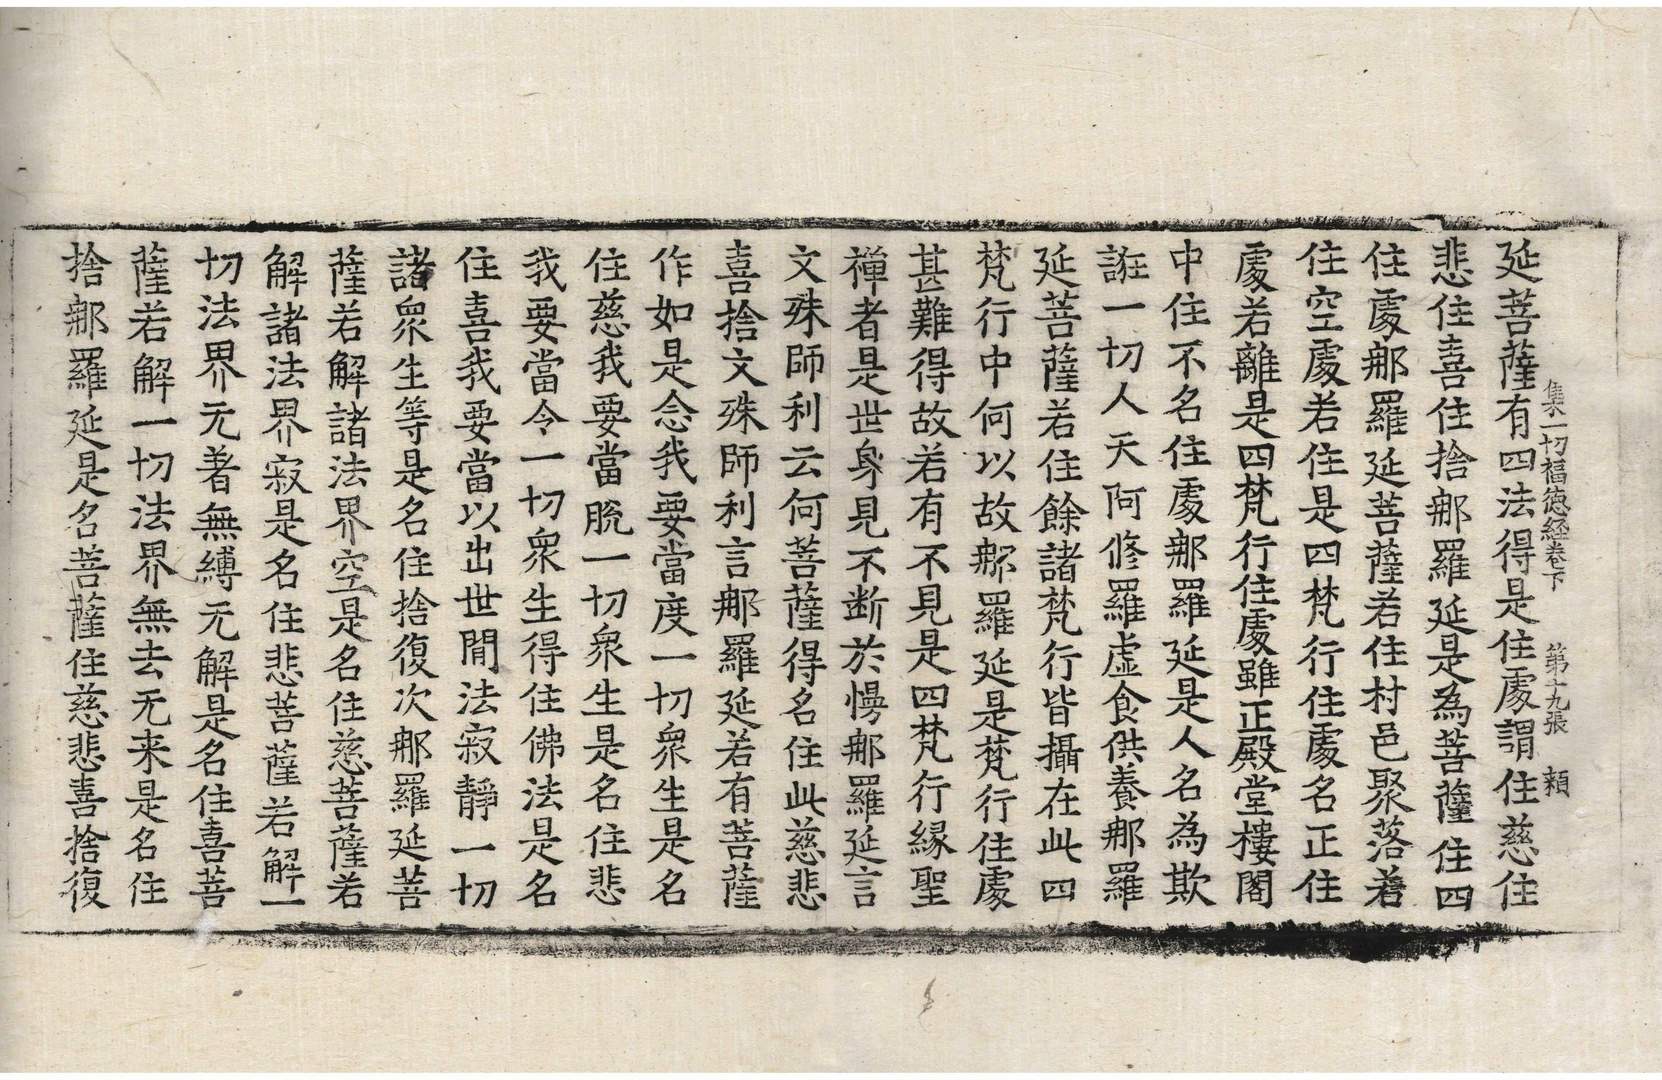 集一切福德経卷下　第十九張　頼
延菩薩有四法得是住處謂住慈住
悲住喜住捨那羅延是為菩薩住四
住處那羅延菩薩若住村邑聚落若
住空處若住是四梵行住處名正住
處若離是四梵行住處雖正殿堂樓閣
中住不名住處那羅延是人名為欺
誑一切人天阿修羅虛食供養那羅
延菩薩若住餘諸梵行皆攝在此四
梵行中何以故那羅延是梵行住處
甚難得故若有不見是四梵行緣聖
禪者是世身見不断於慢那羅延言
文殊師利云何菩薩得名住此慈悲
喜捨文殊師利言那羅延若有菩薩
作如是念我要當度一切衆生是名
住慈我要當脫一切衆生是名住悲
我要當令一切衆生得住佛法是名
住喜我要當以出世間法寂靜一切
諸衆生等是名住捨復次那羅延菩
薩若解諸法界空是名住慈菩薩若
解諸法界寂是名住悲菩薩若解一
切法界无著無縛无解是名住喜菩
薩若解一切法界無去无来是名住
捨那羅延是名菩薩住慈悲喜捨復